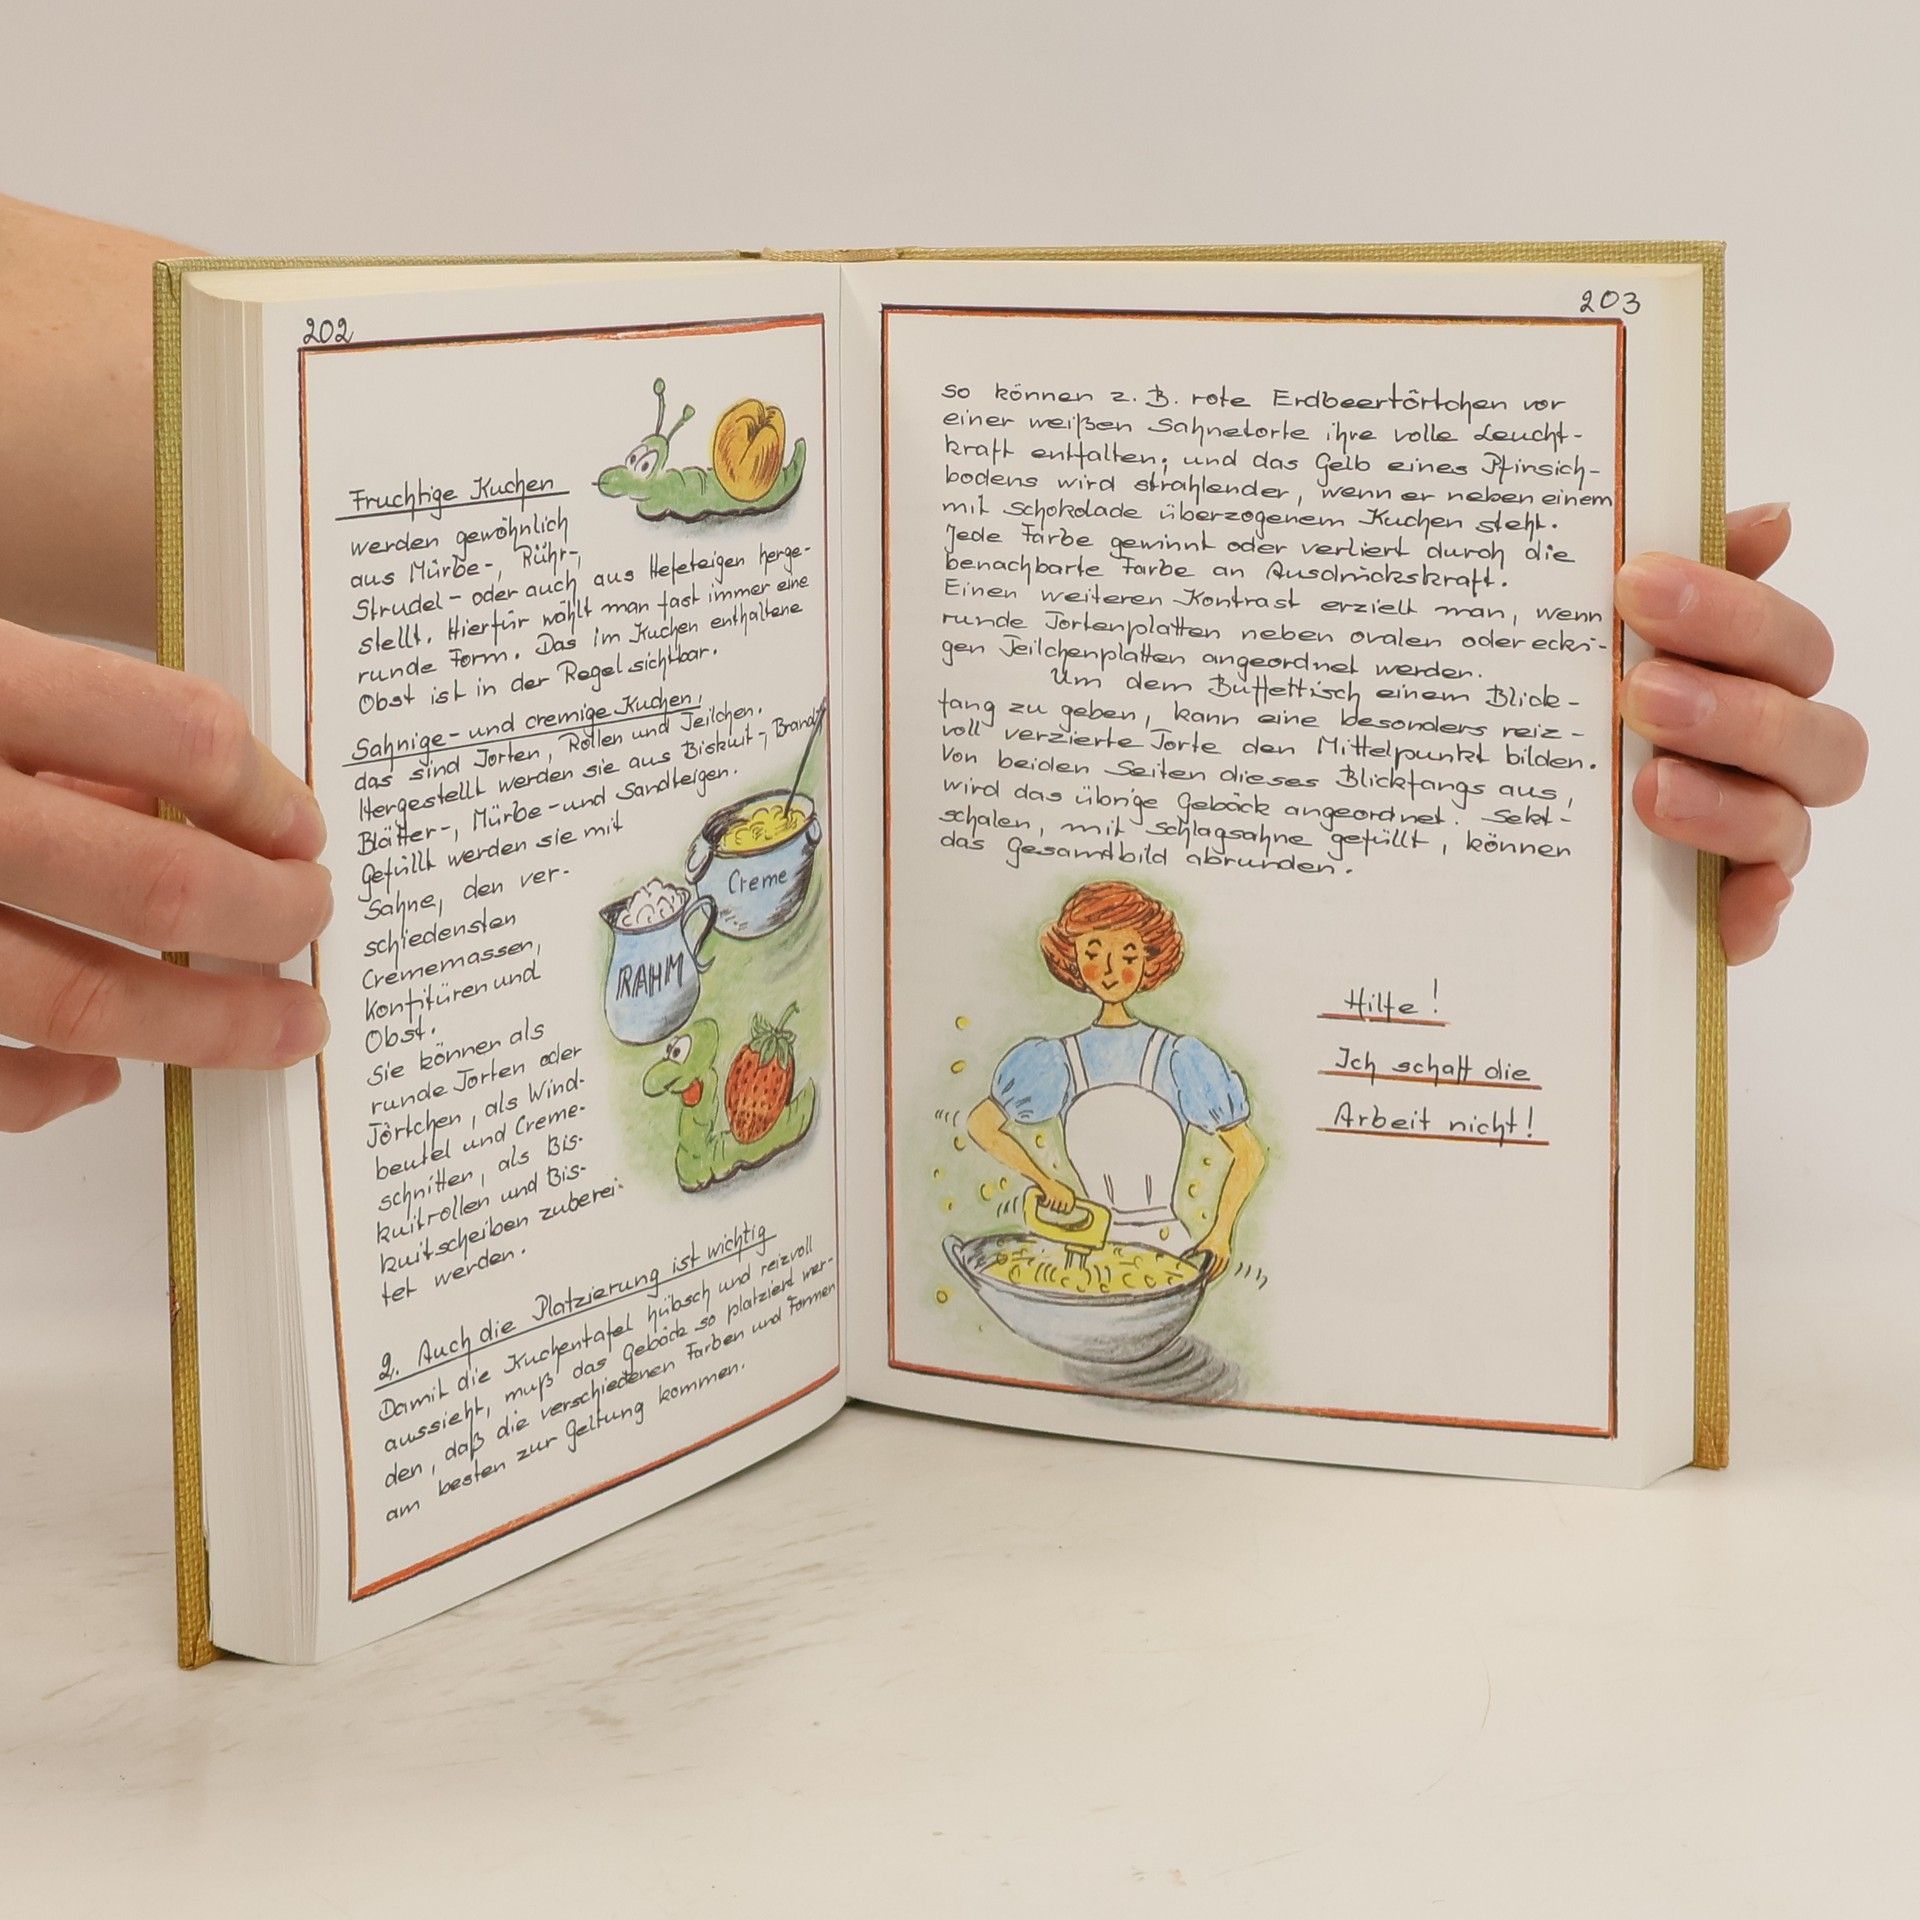 202
Fruchtige Kuchen
werden gewöhnlich
aus Mürbe-, Rühr-,
Strudel- oder auch aus Hefeteigen herge-
stellt. Hierfür wählt man fast immer eine
runde Form. Das im Kuchen enthaltene
Obst ist in der Regel sichtbar.
Sahnige- und cremige Kuchen,
das sind Torten, Rollen und Teilchen.
Hergestellt werden sie aus Biskuit-, Brand-,
Blätter-, Mürbe- und Sandteigen.
Gefüllt werden sie mit
Sahne, den ver-
schiedensten
Crememassen,
Konfitüren und
Obst.
Sie können als
runde Torten oder
Törtchen, als Wind-
beutel und Creme-
schnitten, als Bis-
kuitrollen und Bis-
kuitscheiben zuberei-
tet werden.
Creme
RAHM
2. Auch die Platzierung ist wichtig
Damit die Kuchentafel hübsch und reizvoll
aussieht, muß das Gebäck so platziert wer-
den, daß die verschiedenen Farben und Formen
am besten zur Geltung kommen.
203
So können z. B. rote Erdbeertörtchen vor
einer weißen Sahnetorte ihre volle Leucht-
kraft entfalten; und das Gelb eines Pfirsich-
bodens wird strahlender, wenn er neben einem
mit Schokolade überzogenem Kuchen steht.
Jede Farbe gewinnt oder verliert durch die
benachbarte Farbe an Ausdruckskraft.
Einen weiteren Kontrast erzielt man, wenn
runde Tortenplatten neben ovalen oder ecki-
gen Teilchenplatten angeordnet werden.
Um dem Buffettisch einem Blick-
fang zu geben, kann eine besonders reiz-
voll verzierte Torte den Mittelpunkt bilden.
Von beiden Seiten dieses Blickfangs aus,
wird das übrige Gebäck angeordnet. Sekt-
schalen, mit Schlagsahne gefüllt, können
das Gesamtbild abrunden.
Hilfe!
Ich schaff die
Arbeit nicht!